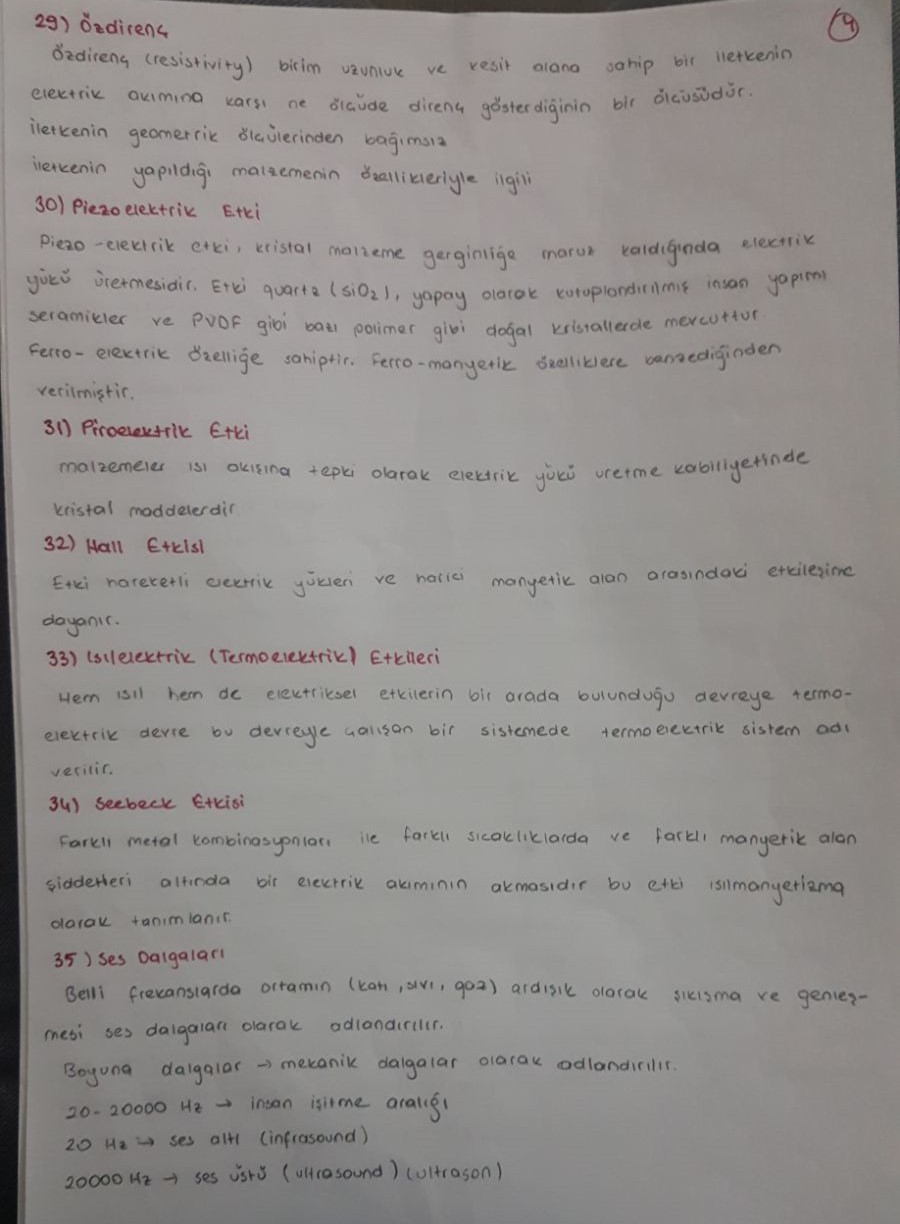 29) Özdirenç
9
Özdirenç (resistivity) birim uzunluk ve kesit alana sahip bir iletkenin
elektrik akımına karşı ne ölçüde direnç gösterdiğinin bir ölçüsüdür.
iletkenin geometrik ölçülerinden bağımsız
iletkenin yapıldığı malzemenin özellikleriyle ilgili
30) Piezoelektrik Etki
Piezo-elektrik etki, kristal malzeme gerginliğe maruz kaldığında elektrik
yükü üretmesidir. Etki quartz (SiO2), yapay olarak kutuplandırılmış insan yapımı
seramikler ve PVDF gibi bazı polimer gibi doğal kristallerde mevcuttur.
Ferro-elektrik özelliğe sahiptir. Ferro-manyetik özelliklere benzediğinden
verilmiştir.
31) Piroelektrik Etki
malzemeler ısı akışına tepki olarak elektrik yükü üretme kabiliyetinde
kristal maddelerdir.
32) Hall Etkisi
Etki hareketli elektrik yükleri ve harici manyetik alan arasındaki etkileşime
dayanır.
33) Isılelektrik (Termoelektrik) Etkileri
Hem ısıl hem de elektriksel etkilerin bir arada bulunduğu devreye termo-
elektrik devre bu devreyle çalışan bir sistemede termoelektrik sistem adı
verilir.
34) Seebeck Etkisi
Farklı metal kombinasyonları ile farklı sıcaklıklarda ve farklı manyetik alan
şiddetleri altında bir elektrik akımının akmasıdır bu etki ısılmanyetizma
olarak tanımlanır.
35) Ses Dalgaları
Belli frekanslarda ortamın (katı, sıvı, gaz) ardışık olarak sıkışma ve genleş-
mesi ses dalgaları olarak adlandırılır.
Boyuna dalgalar → mekanik dalgalar olarak adlandırılır.
20-20000 Hz → insan işitme aralığı
20 Hz → ses altı (infrasound)
20000 Hz → ses üstü (ultrasound) (ultrason)